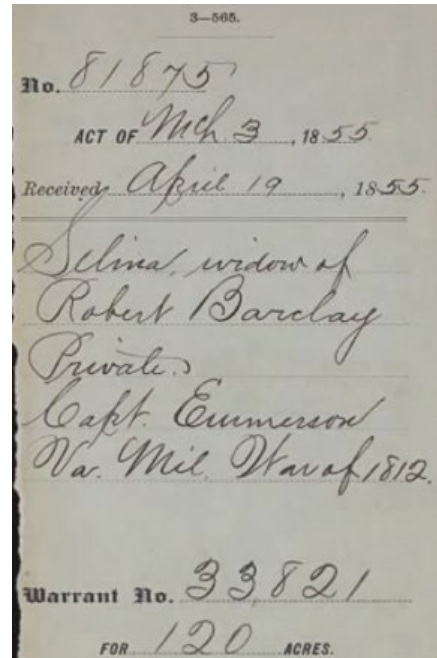 3—565.
No. 81875
ACT OF Mch. 3, 1855
Received April 19, 1855.
Selina, widow of
Robert Barclay
Private.
Capt. Emmerson
Va. Mil. War of 1812.
Warrant No. 33,821
FOR 120 ACRES.